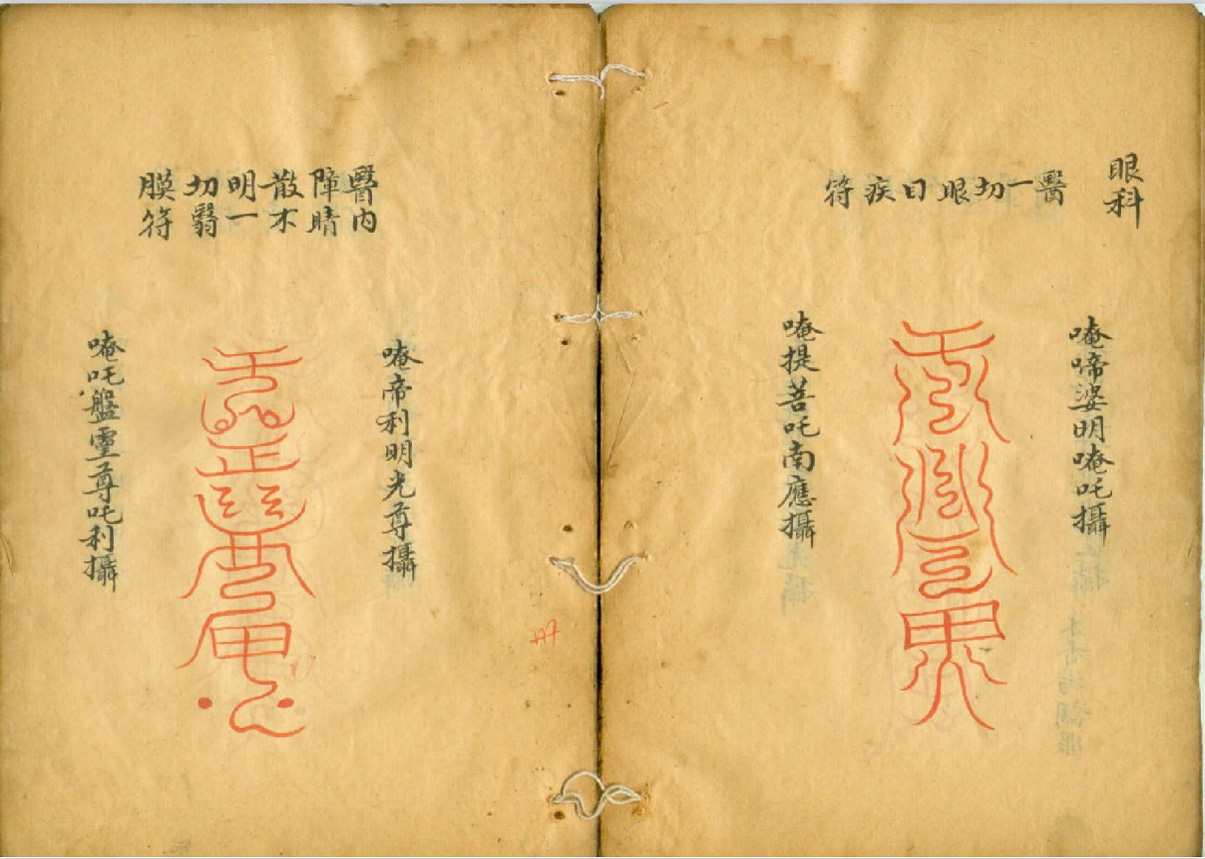 眼科
醫一切眼日疾符
唵啼婆明唵吒攝
唵提菩吒南應攝
醫內
障睛
散不
明一
切翳
膜符
唵帝利明光尊攝
唵吒盤靈尊吒利攝